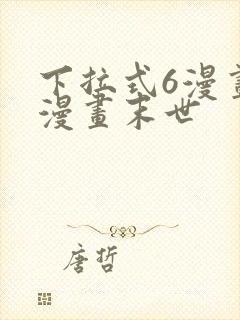 下拉式6漫畫
漫畫末世
唐哲